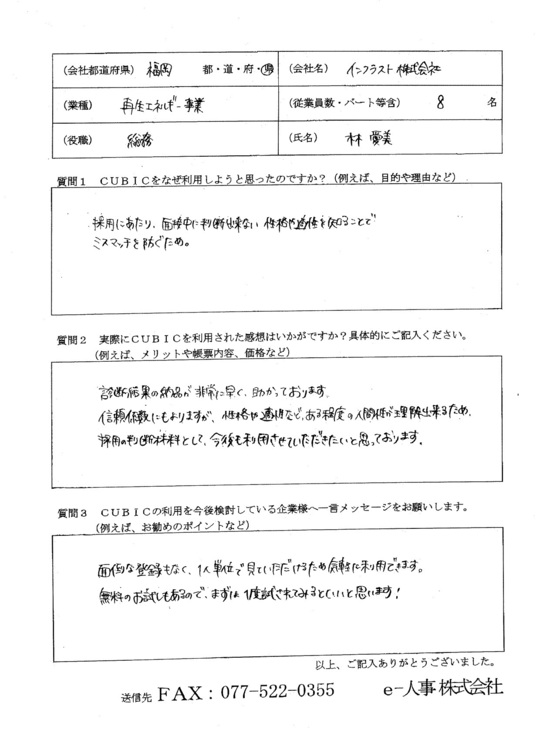 (会社都道府県) 福岡 都・道・府・県 (会社名) インフラスト株式会社
(業種) 再生エネルギー事業 (従業員数・パート等含) 8 名
(役職) 総務 (氏名) 林 愛美
質問1 CUBICをなぜ利用しようと思ったのですか?(例えば、目的や理由など)
採用にあたり、面接中に判断出来ない 性格や適性を知ることで
ミスマッチを防ぐため。
質問2 実際にCUBICを利用された感想はいかがですか?具体的にご記入ください。
(例えば、メリットや帳票内容、価格など)
診断結果の納品が非常に早く、助かっております。
信頼係数にもよりますが、性格や適性など、ある程度の人間性が理解出来るため、
採用の判断材料として、今後も利用させていただきたいと思っております。
質問3 CUBICの利用を今後検討している企業様へ一言メッセージをお願いします。
(例えば、お勧めのポイントなど)
面倒な登録もなく、1人単位で見ていただけるため気軽に利用できます。
無料のお試しもあるので、まずは1度試されてみるといいと思います!
以上、ご記入ありがとうございました。
送信先 FAX:077-522-0355 e-人事株式会社